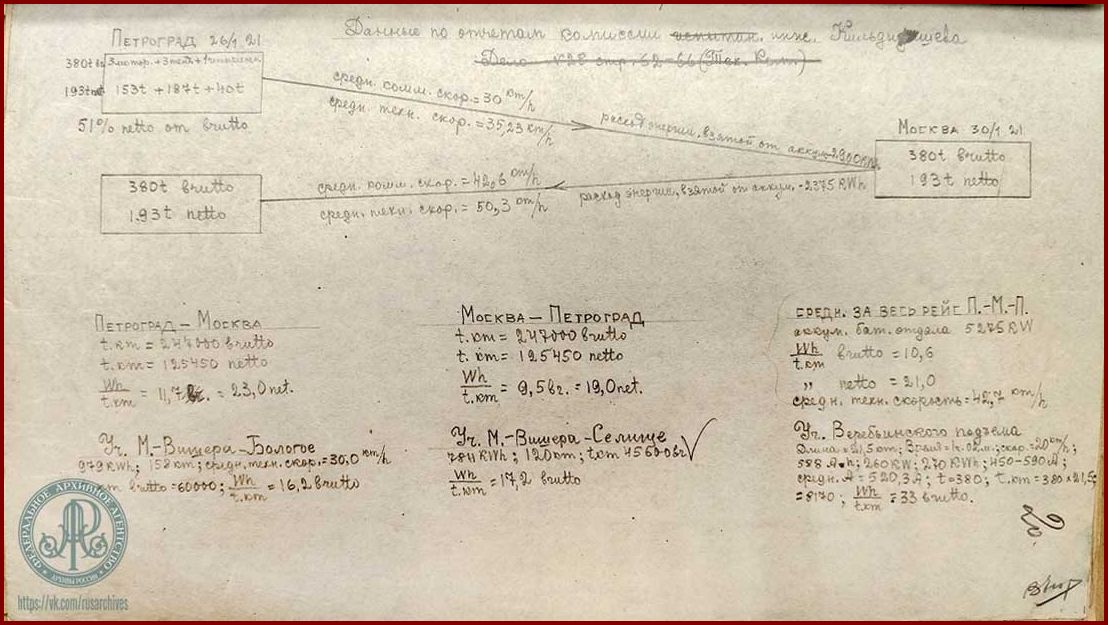 Данные по отчетам комиссии испытан. инж.
Дело №28 стр. 62-66 (Тех. Ком.)
ПЕТРОГРАД 26/I 21
380t br.
3 мотор. + 3
193t net
153t + 187t + 40t
51% netto от brutto
средн. комм. скор. = 30 km/h
средн. техн. скор. = 35,23 km/h
расход энергии, взятой от аккум.-2900
МОСКВА 30/I 21
380t brutto
193t netto
380t brutto
193t netto
средн. комм. скор. = 42,6 km/h
средн. техн. скор. = 50,3 km/h
расход энергии, взятой от аккум. -2375 KWh
ПЕТРОГРАД – МОСКВА
t.km = 247000 brutto
t.km = 125450 netto
Wh/t.km = 11,7 br. = 23,0 net.
Уч. М.-Вишера-Бологое
979 KWh; 158 km; средн. техн. скор. = 30,0 km/h
brutto = 60000; Wh/t.km = 16,2 brutto
МОСКВА – ПЕТРОГРАД
t.km = 247000 brutto
t.km = 125450 netto
Wh/t.km = 9,5 br. = 19,0 net.
Уч. М.-Вишера-Селище
784 KWh; 120 km; t.km 45600 br.
Wh/t.km = 17,2 brutto
СРЕДН. ЗА ВЕСЬ РЕЙС П.-М.-П.
аккум. бат. отдала 5275 KW
Wh/t.km brutto = 10,6
„ netto = 21,0
средн. техн. скорость = 42,7 km/h
Уч. Веребьинского подъема
Длина = 21,5 km; скор. = 20 km/h;
558 A.h; 260 KW; 270 KWh; 450-590 A;
средн. A = 520,3 A; t = 380; t.km = 380 x 21,5 =
= 8170; Wh/t.km = 33 brutto.
ФЕДЕРАЛЬНОЕ АРХИВНОЕ АГЕНТСТВО
АРХИВЫ РОССИИ
https://vk.com/rusarchives